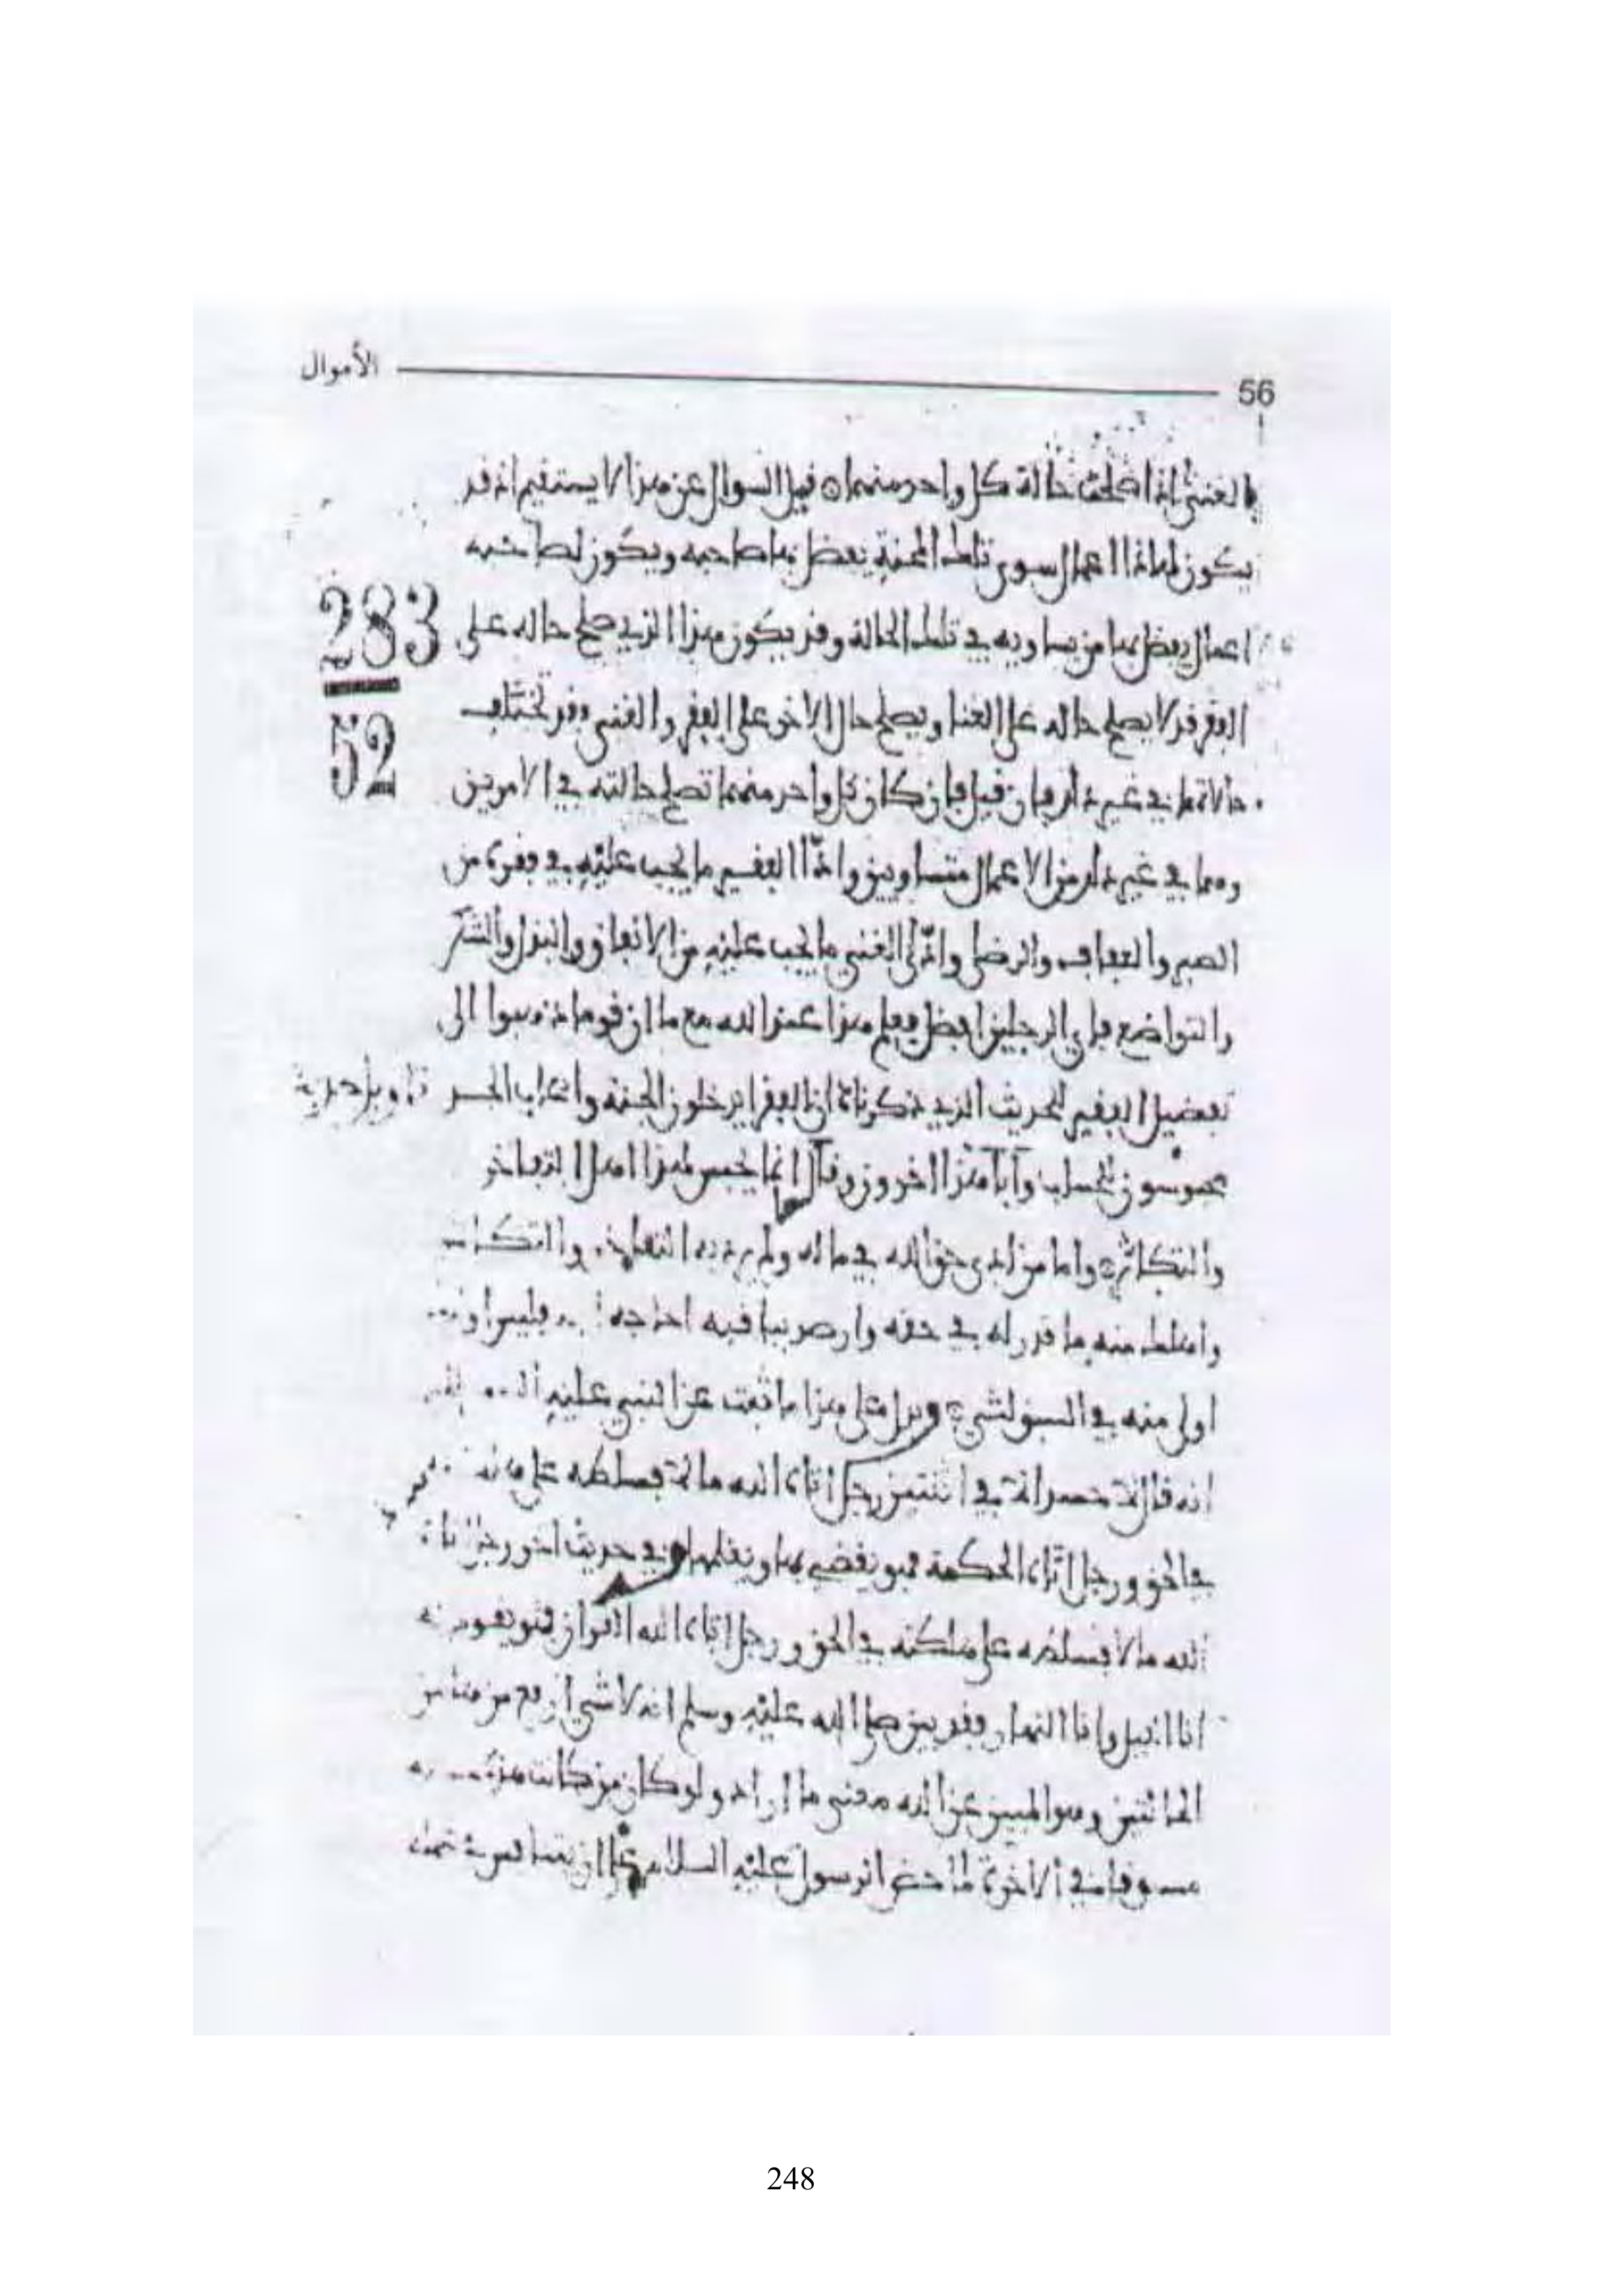 56 الأموال
والغنى إذا صلحت حالة كل واحد منهما قيل السؤال عن هذا لا يستقيم انه قد
يكون لهاذا اعمال سوى تلك المحنة يفضل بها صاحبه ويكون لصاحبه
اعمال يفضل بها من يساويه في تلك الحالة وقد يكون هذا الذي صلح حاله على
283
الفقر قد لا يصلح حاله على الغنا ويصلح حال الاخر على الفقر والغنى وقد تختلف
52
حالاتهما في غير ذلك فإن قيل فإن كان كل واحد منهما تصلح حالته في الامرين
وهما في غير ذلك من الاعمال متساويين وادّا الفقير ما يجب عليه في فقره من
الصبر والعفاف والرضا وادّى الغني ما يجب عليه من الانفاق والبذل والشكر
والتواضع فاي الرجلين افضل قيل هذا عند الله مع ما ان قوما ذهبوا الى
تفضيل الفقير لحديث الذي ذكرناه ان الفقرا يدخلون الجنة واصحاب الجد
محبوسون للحساب وأبا هذا اخرون وقال انما يحبس لهذا اهل التفاخر
والتكاثر واما من ادى حق الله في ماله ولم يرد به التفاخر والتكاثر
وامسك منه ما قدر له في حقه وارصد باقيه فليس
اولى منه في السبق لشي ويدل على هذا ما ثبت عن النبي عليه
انه قال لا حسد الا في اثنتين رجل اتاه الله مالا فسلطه على
في الحق ورجل اتاه الحكمة فهو يقضي بها ويعلمها وفي حديث اخر رجل اتاه
الله مالا فسلطه على هلكته في الحق ورجل اتاه الله القران فهو يقوم به
انا الليل وانا النهار وقد بين صلى الله عليه وسلم انه لا شي ارفع من هاتين
الحالتين وهو المبين عن الله معنى ما اراد ولو كان من كانت
مسبوقا في الاخرة لما حض الرسول عليه السلام على ان
248